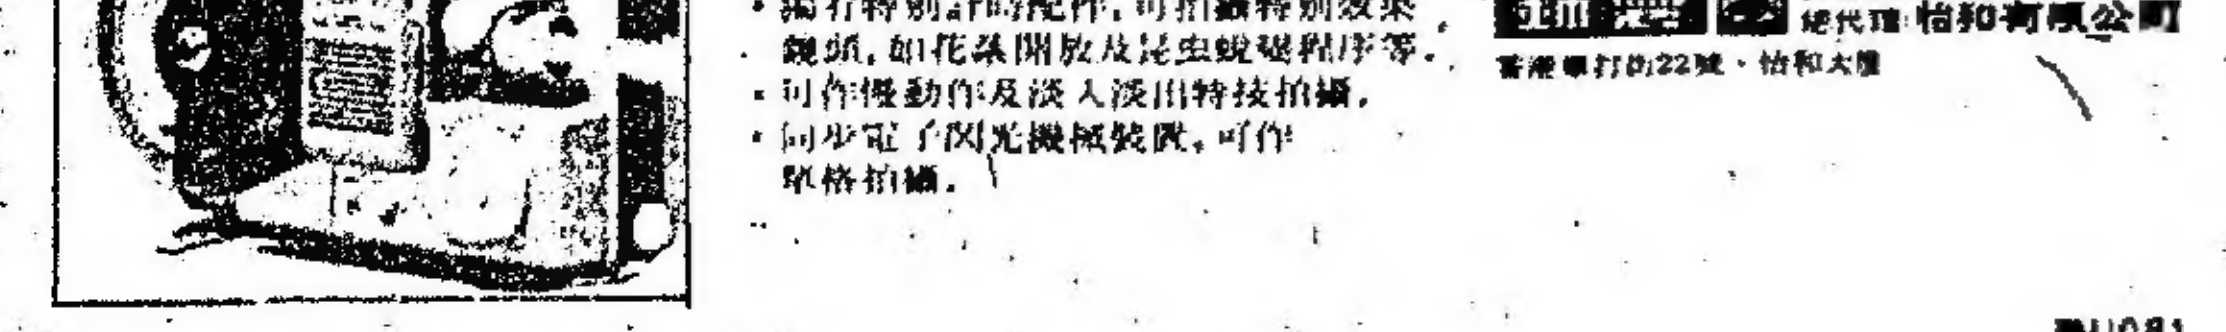 • 獨有特別計時配件,可拍攝特別效果
鏡頭,如花朵開放及昆虫蛻變程序等.
• 可作慢動作及淡入淡出特技拍攝.
• 同步電子閃光機械裝置,可作
單格拍攝.
總代理:怡和有限公司
香港畢打街22號・怡和大廈